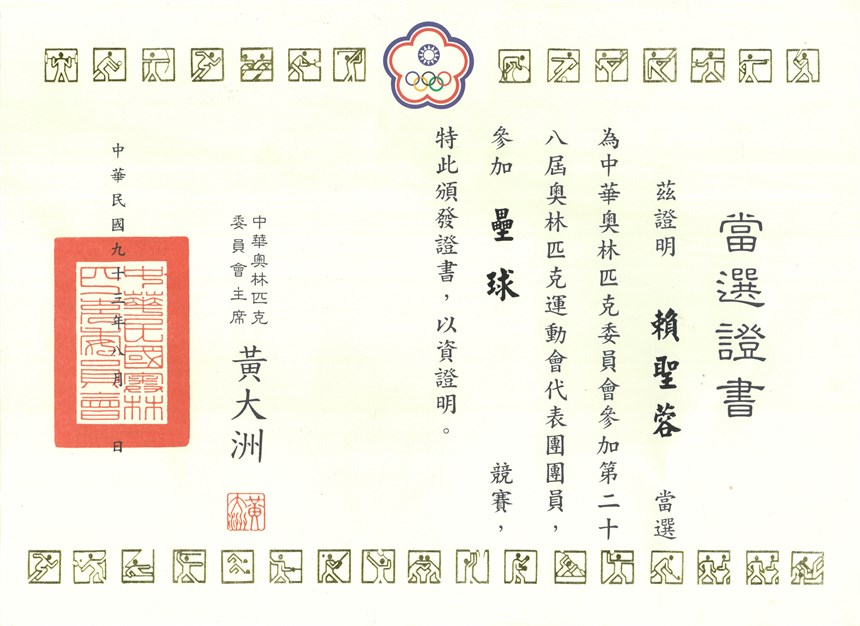 當選證書
茲證明 賴聖蓉 當選
為中華奧林匹克委員會參加第二十
八屆奧林匹克運動會代表團團員，
參加 壘球 競賽，
特此頒發證書，以資證明。
中華奧林匹克
委員會主席 黃大洲
黃大洲
中華民國九十三年八月 日
中華民國奧林匹克委員會